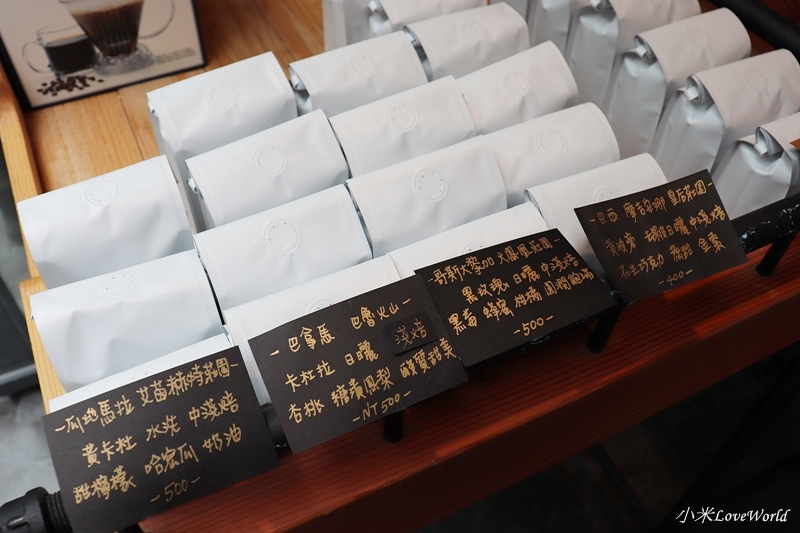 -瓜地馬拉 艾茵赫特莊園-
黃卡杜 水洗 中淺焙
甜檸檬 哈密瓜 奶油
-500-
-巴拿馬 巴魯火山-
卡杜拉 日曬 淺焙
杏桃 糖漬鳳梨
-NT500-
-哥斯大黎加 火鳳凰莊園-
黑玫瑰 日曬 中淺焙
黑莓 蜂蜜 柑橘
-500-
-巴西 皇后莊園-
日曬 中淺焙
巧克力 堅果
-400-
小米LoveWorld